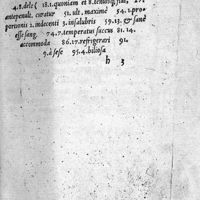 4.8. dele ( 18.1. quoniam et 8. tenuisq; fiat,
antepenult. curatur 51. ult. maximè 54.1. pro-
portionis 2. indecenti 3. insalubris 59.13. & sanè
esse sang. 74.7. temperatus succus 81.14.
accommoda 86.17. refrigerari 91.
9. à sese 95.4. biliosa
h 3